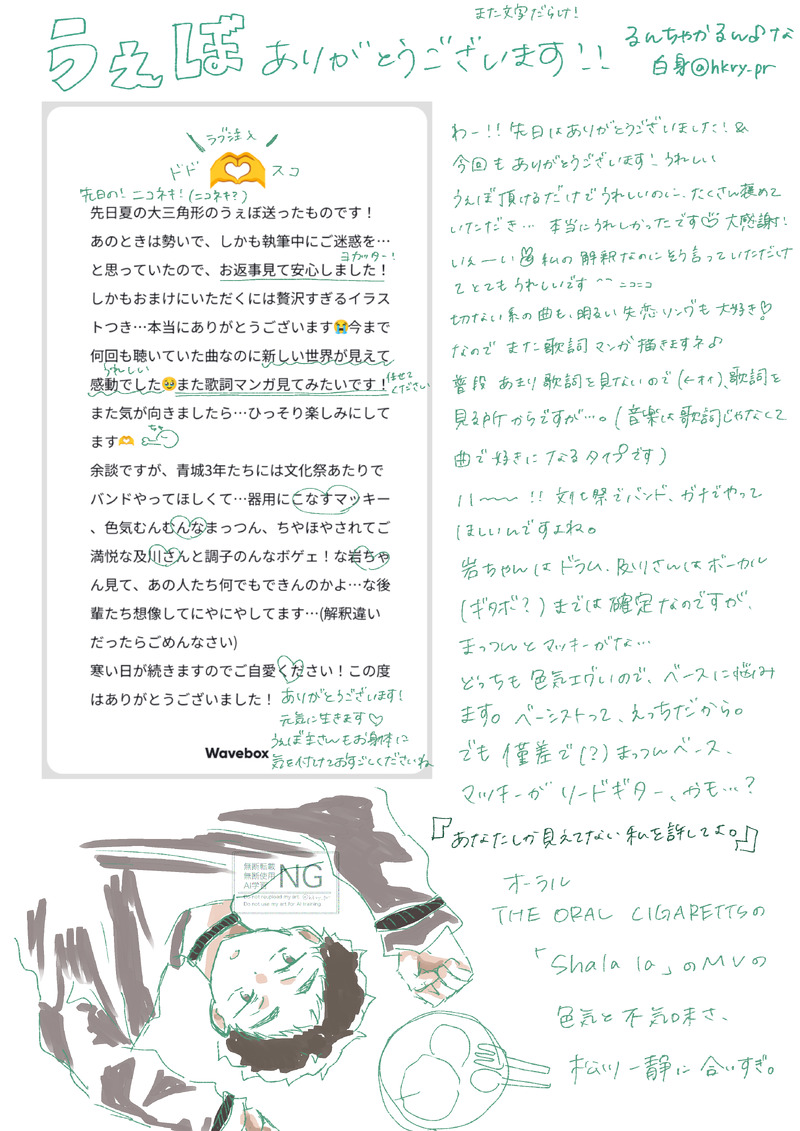 また文字だらけ!
うぇぼ ありがとうございます!!
るんちゃかるん♪な
白身@hkry_pr
ラブ注入
ドド 🫶 スコ
先日の!ニコネキ!(ニコネキ?)
先日夏の大三角形のうぇぼ送ったものです!
あのときは勢いで、しかも執筆中にご迷惑を…
ヨカッター!
と思っていたので、お返事見て安心しました!
しかもおまけにいただくには贅沢すぎるイラス
トつき…本当にありがとうございます😭今まで
何回も聴いていた曲なのに新しい世界が見えて
うれしい
感動でした🥹また歌詞マンガ見てみたいです!
任せて
ください
また気が向きましたら…ひっそり楽しみにして
ます🫶
余談ですが、青城3年たちには文化祭あたりで
バンドやってほしくて…器用にこなすマッキー
、色気むんむんなまっつん、ちやほやされてご
満悦な及川さんと調子のんなボゲェ!な岩ちゃ
ん見て、あの人たち何でもできんのかよ…な後
輩たち想像してにやにやしてます…(解釈違い
だったらごめんなさい)
寒い日が続きますのでご自愛ください!この度
はありがとうございました!
ありがとうございます!
元気に生きます♡
うぇぼ主さんもお身体に
気を付けてお過ごしくださいね
Wavebox
わー!!先日はありがとうございました!&
今回もありがとうございます!うれしい
うぇぼ頂けるだけでうれしいのに、たくさん褒めて
いただき…本当にうれしかったです♡大感謝!
いぇーい 私の解釈なのにそう言っていただけ
てとてもうれしいです^^ニコニコ
切ない系の曲も、明るい失恋ソングも大好き♡
なのでまた歌詞マンガ描きますネ♪
普段あまり歌詞を見ないので(←オイ)、歌詞を
見る所からですが…。(音楽は歌詞じゃなくて
曲で好きになるタイプです)
!! 文化祭でバンド、ガチでやって
ほしいんですよね。
岩ちゃんはドラム、及川さんはボーカル
(ギタボ?)までは確定なのですが、
まっつんとマッキーがな…
どっちも色気エグいので、ベースに悩み
ます。ベーシストって、えっちだから。
でも僅差で(?)まっつんベース、
マッキーがリードギター、かも…?
『あなたしか見えてない私を許してよ。』
オーラル
THE ORAL CIGARETTSの
「Shala la」のMVの
色気と不気味さ、
松川一静に合いすぎ。
無断転載
無断使用
AI学習
NG
Do not repost my art. @hkry_pr
Do not use my art for AI training